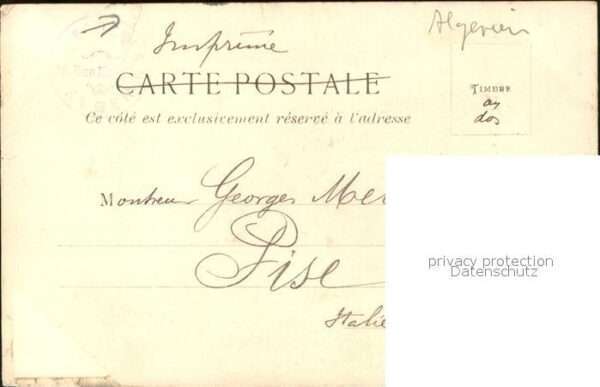 Algerien
Imprimé
CARTE POSTALE
TIMBRE
au
dos
Ce côté est exclusivement réservé à l'adresse
Monsieur Georges Mer
Pise
Italie
privacy protection
Datenschutz